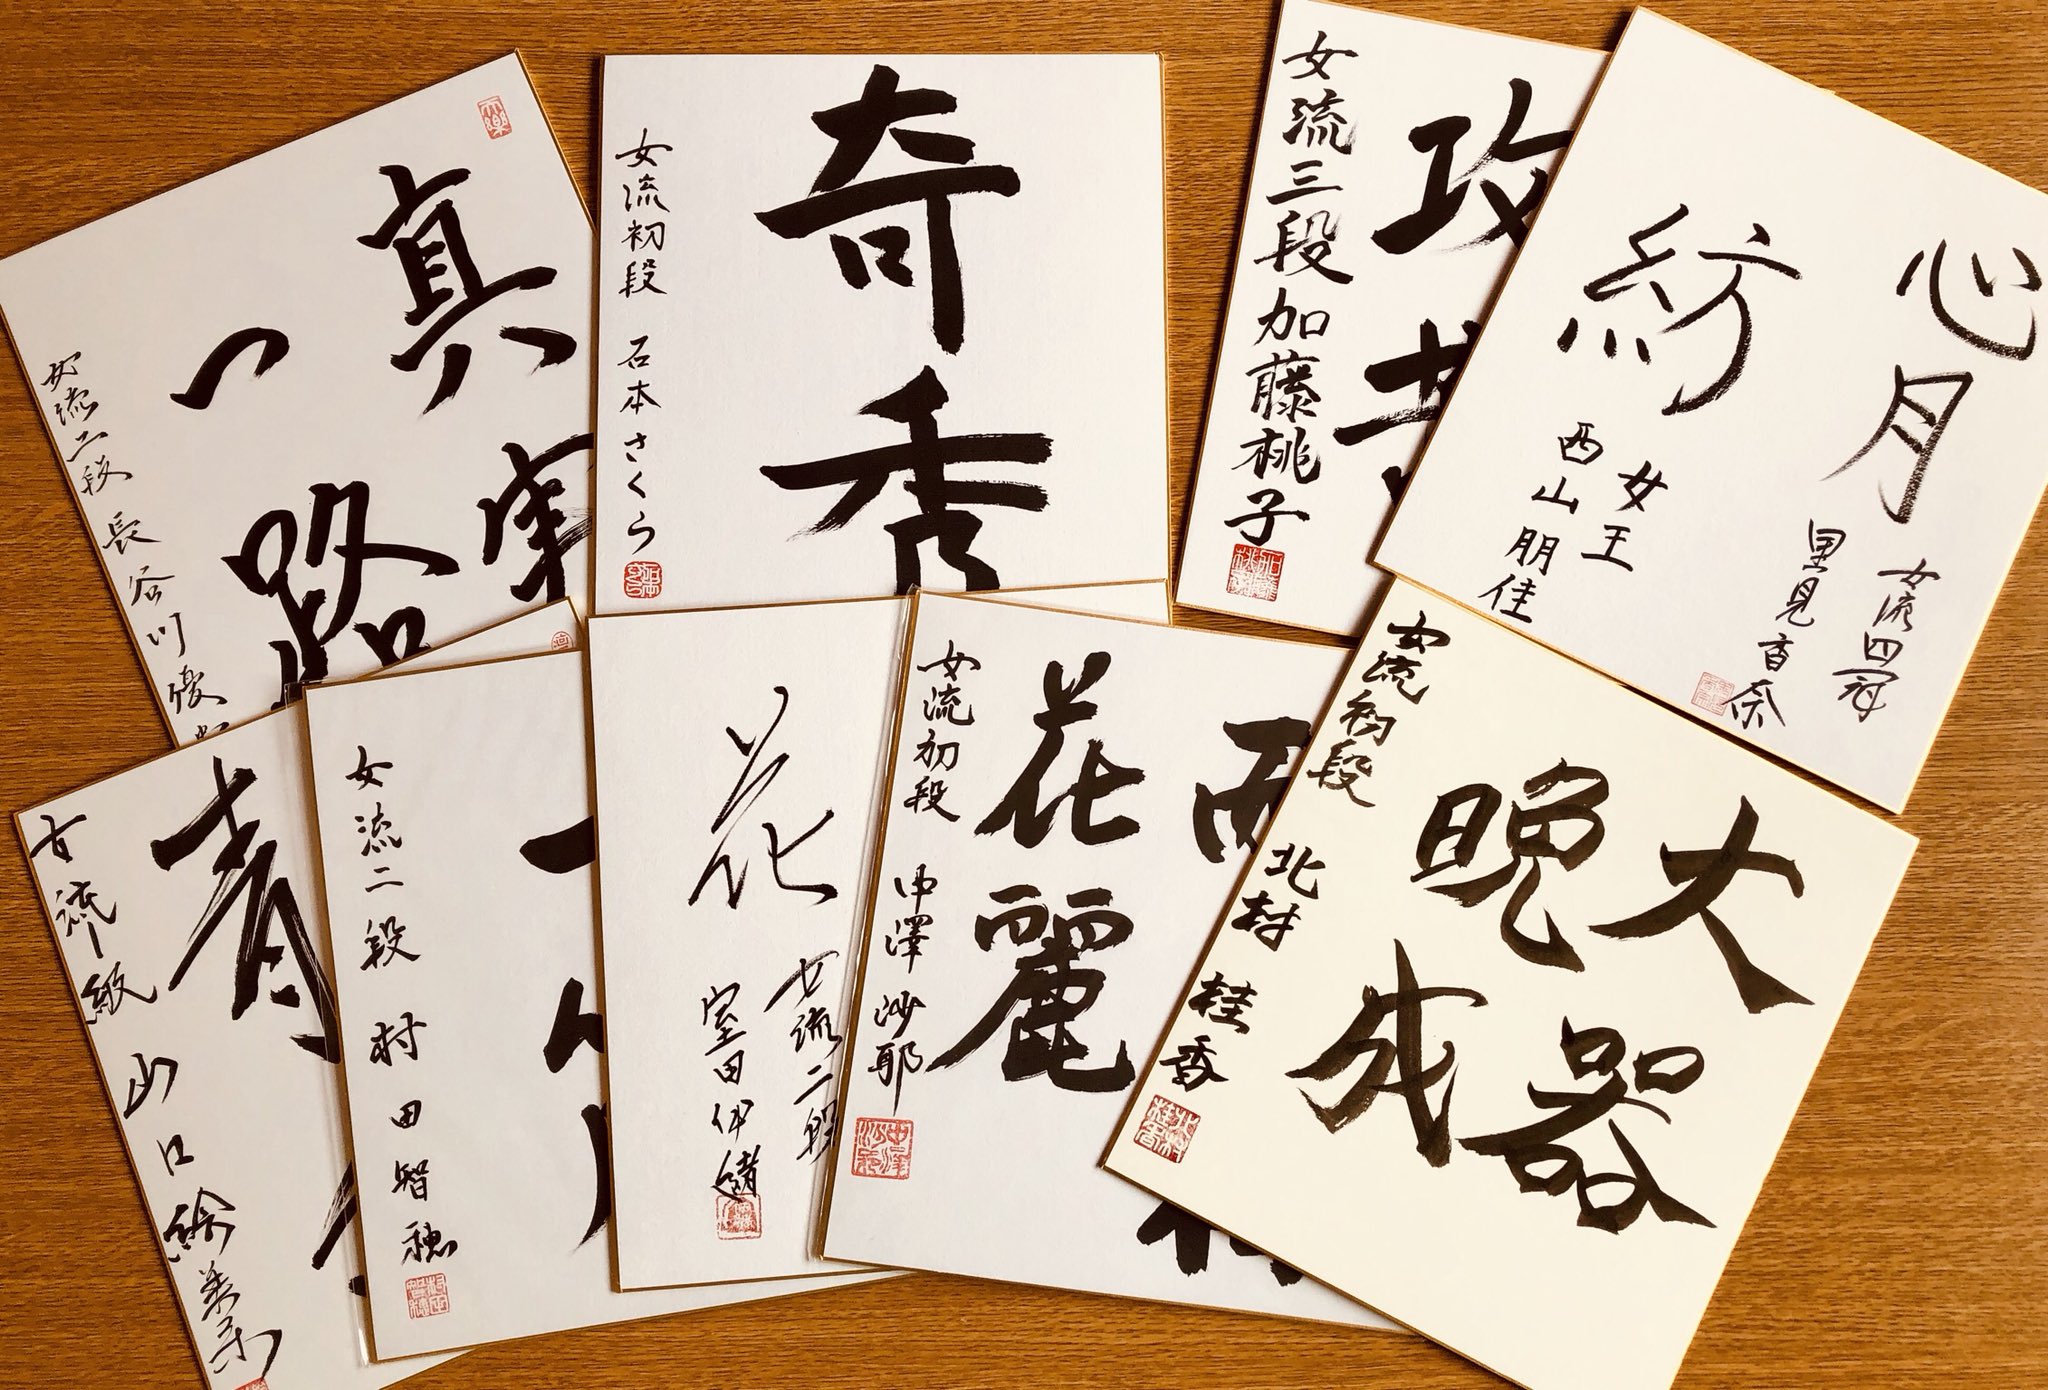 真
一
路
女流二段 長谷川優
奇秀
女流初段 石本さくら
攻
女流三段 加藤桃子
心月
女流四冠
里見香奈
紡
女王
西山朋佳
青
女流1級 山口絵美菜
女流二段 村田智穂
花
女流二段
室田伊緒
花麗
女流初段 中澤沙耶
大器
晩成
女流初段 北村桂香